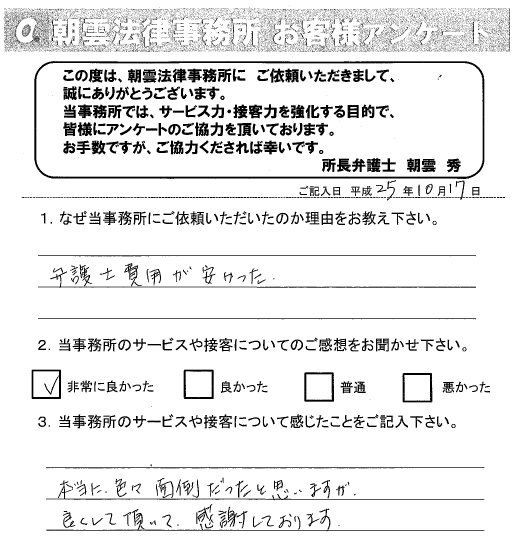 朝雲法律事務所 お客様アンケート
この度は、朝雲法律事務所に ご依頼いただきまして、
誠にありがとうございます。
当事務所では、サービス力・接客力を強化する目的で、
皆様にアンケートのご協力を頂いております。
お手数ですが、ご協力くだされば幸いです。
所長弁護士 朝雲 秀
ご記入日 平成 25 年 10 月 17 日
1. なぜ当事務所にご依頼いただいたのか理由をお教え下さい。
弁護士費用が安かった.
2. 当事務所のサービスや接客についてのご感想をお聞かせ下さい。
✓ 非常に良かった 良かった 普通 悪かった
3. 当事務所のサービスや接客について感じたことをご記入下さい。
本当に、色々面倒だったと思いますが、
良くして頂いて、感謝しております.